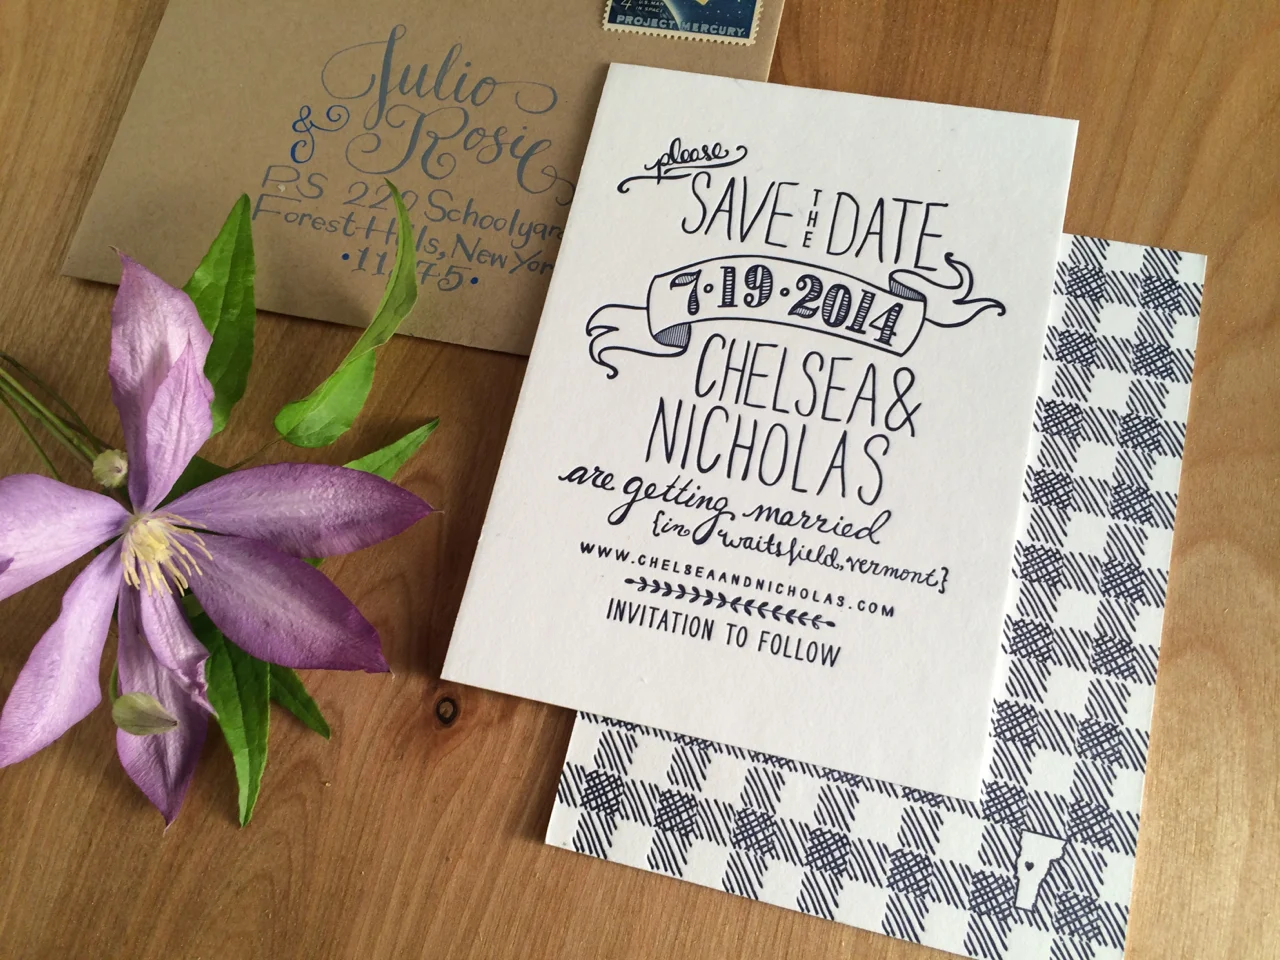 4¢
U.S. MAN
IN SPACE
PROJECT MERCURY
Julio
& Rosie
P.S 220 Schoolyard
Forest Hills, New York
·11375·
please
SAVE THE DATE
7·19·2014
CHELSEA &
NICHOLAS
are getting married
{in waitsfield, vermont}
WWW.CHELSEAANDNICHOLAS.COM
INVITATION TO FOLLOW